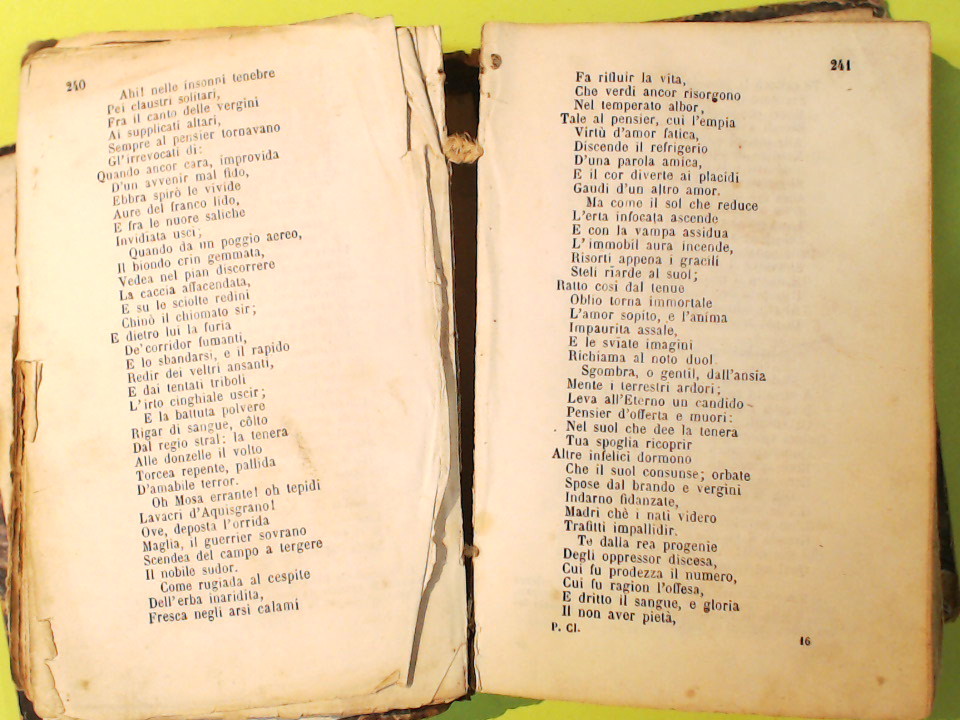 240
Ahi! nelle insonni tenebre
Pei claustri solitari,
Fra il canto delle vergini
Ai supplicati altari,
Sempre al pensier tornavano
Gl'irrevocati dì:
Quando ancor cara, improvida
D'un avvenir mal fido,
Ebbra spirò le vivide
Aure del franco lido,
E fra le nuore saliche
Invidiata uscì;
Quando da un poggio aereo,
Il biondo crin gemmata,
Vedea nel pian discorrere
La caccia affacendata,
E su le sciolte redini
Chinò il chiomato sir;
E dietro lui la furia
De' corridor fumanti,
E lo sbandarsi, e il rapido
Redir dei veltri ansanti,
E dai tentati triboli
L'irto cinghiale uscir;
E la battuta polvere
Rigar di sangue, côlto
Dal regio stral: la tenera
Alle donzelle il volto
Torcea repente, pallida
D'amabile terror.
Oh Mosa errante! oh tepidi
Lavacri d'Aquisgrano!
Ove, deposta l'orrida
Maglia, il guerrier sovrano
Scendea del campo a tergere
Il nobile sudor.
Come rugiada al cespite
Dell'erba inaridita,
Fresca negli arsi calami
241
Fa rifluir la vita,
Che verdi ancor risorgono
Nel temperato albor,
Tale al pensier, cui l'empia
Virtù d'amor fatica,
Discende il refrigerio
D'una parola amica,
E il cor diverte ai placidi
Gaudi d'un altro amor.
Ma come il sol che reduce
L'erta infocata ascende
E con la vampa assidua
L'immobil aura incende,
Risorti appena i gracili
Steli riarde al suol;
Ratto così dal tenue
Oblio torna immortale
L'amor sopito, e l'anima
Impaurita assale,
E le sviate imagini
Richiama al noto duol.
Sgombra, o gentil, dall'ansia
Mente i terrestri ardori;
Leva all'Eterno un candido
Pensier d'offerta e muori:
Nel suol che dee la tenera
Tua spoglia ricoprir
Altre infelici dormono
Che il suol consunse; orbate
Spose dal brando e vergini
Indarno fidanzate,
Madri chè i nati videro
Trafitti impallidir.
Te dalla rea progenie
Degli oppressor discesa,
Cui fu prodezza il numero,
Cui fu ragion l'offesa,
E dritto il sangue, e gloria
Il non aver pietà,
P. Cl.
16